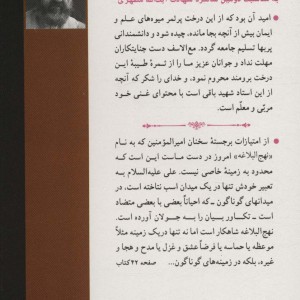 امید آن بود که از این درخت پرثمر میوه‌های علم و
ایمان بیش از آنچه بجا مانده، چیده شود و دانشمندانی
پربها تسلیم جامعه گردد. مع‌الاسف دست جنایتکاران
مهلت نداد و جوانان عزیز ما را از ثمرهٔ طیبهٔ این
درخت برومند محروم نمود، و خدای را شکر که آنچه
از این استاد شهید باقی است با محتوای غنی خود
مربّی و معلّم است.
از امتیازات برجستهٔ سخنان امیرالمؤمنین که به نام
«نهج‌البلاغه» امروز در دست ماست این است که
محدود به زمینهٔ خاصی نیست. علی علیه‌السلام به
تعبیر خودش تنها در یک میدان اسب نتاخته است، در
میدانهای گوناگون ـ که احیاناً بعضی با بعضی متضاد
است ـ تکاور بیان را به جولان آورده است.
نهج‌البلاغه شاهکار است اما نه تنها دریک زمینه مثلاً
موعظه یا حماسه یا فرضاً عشق و غزل یا مدح و هجا و
غیره، بلکه در زمینه‌های گوناگون... صفحه ۴۲ کتاب